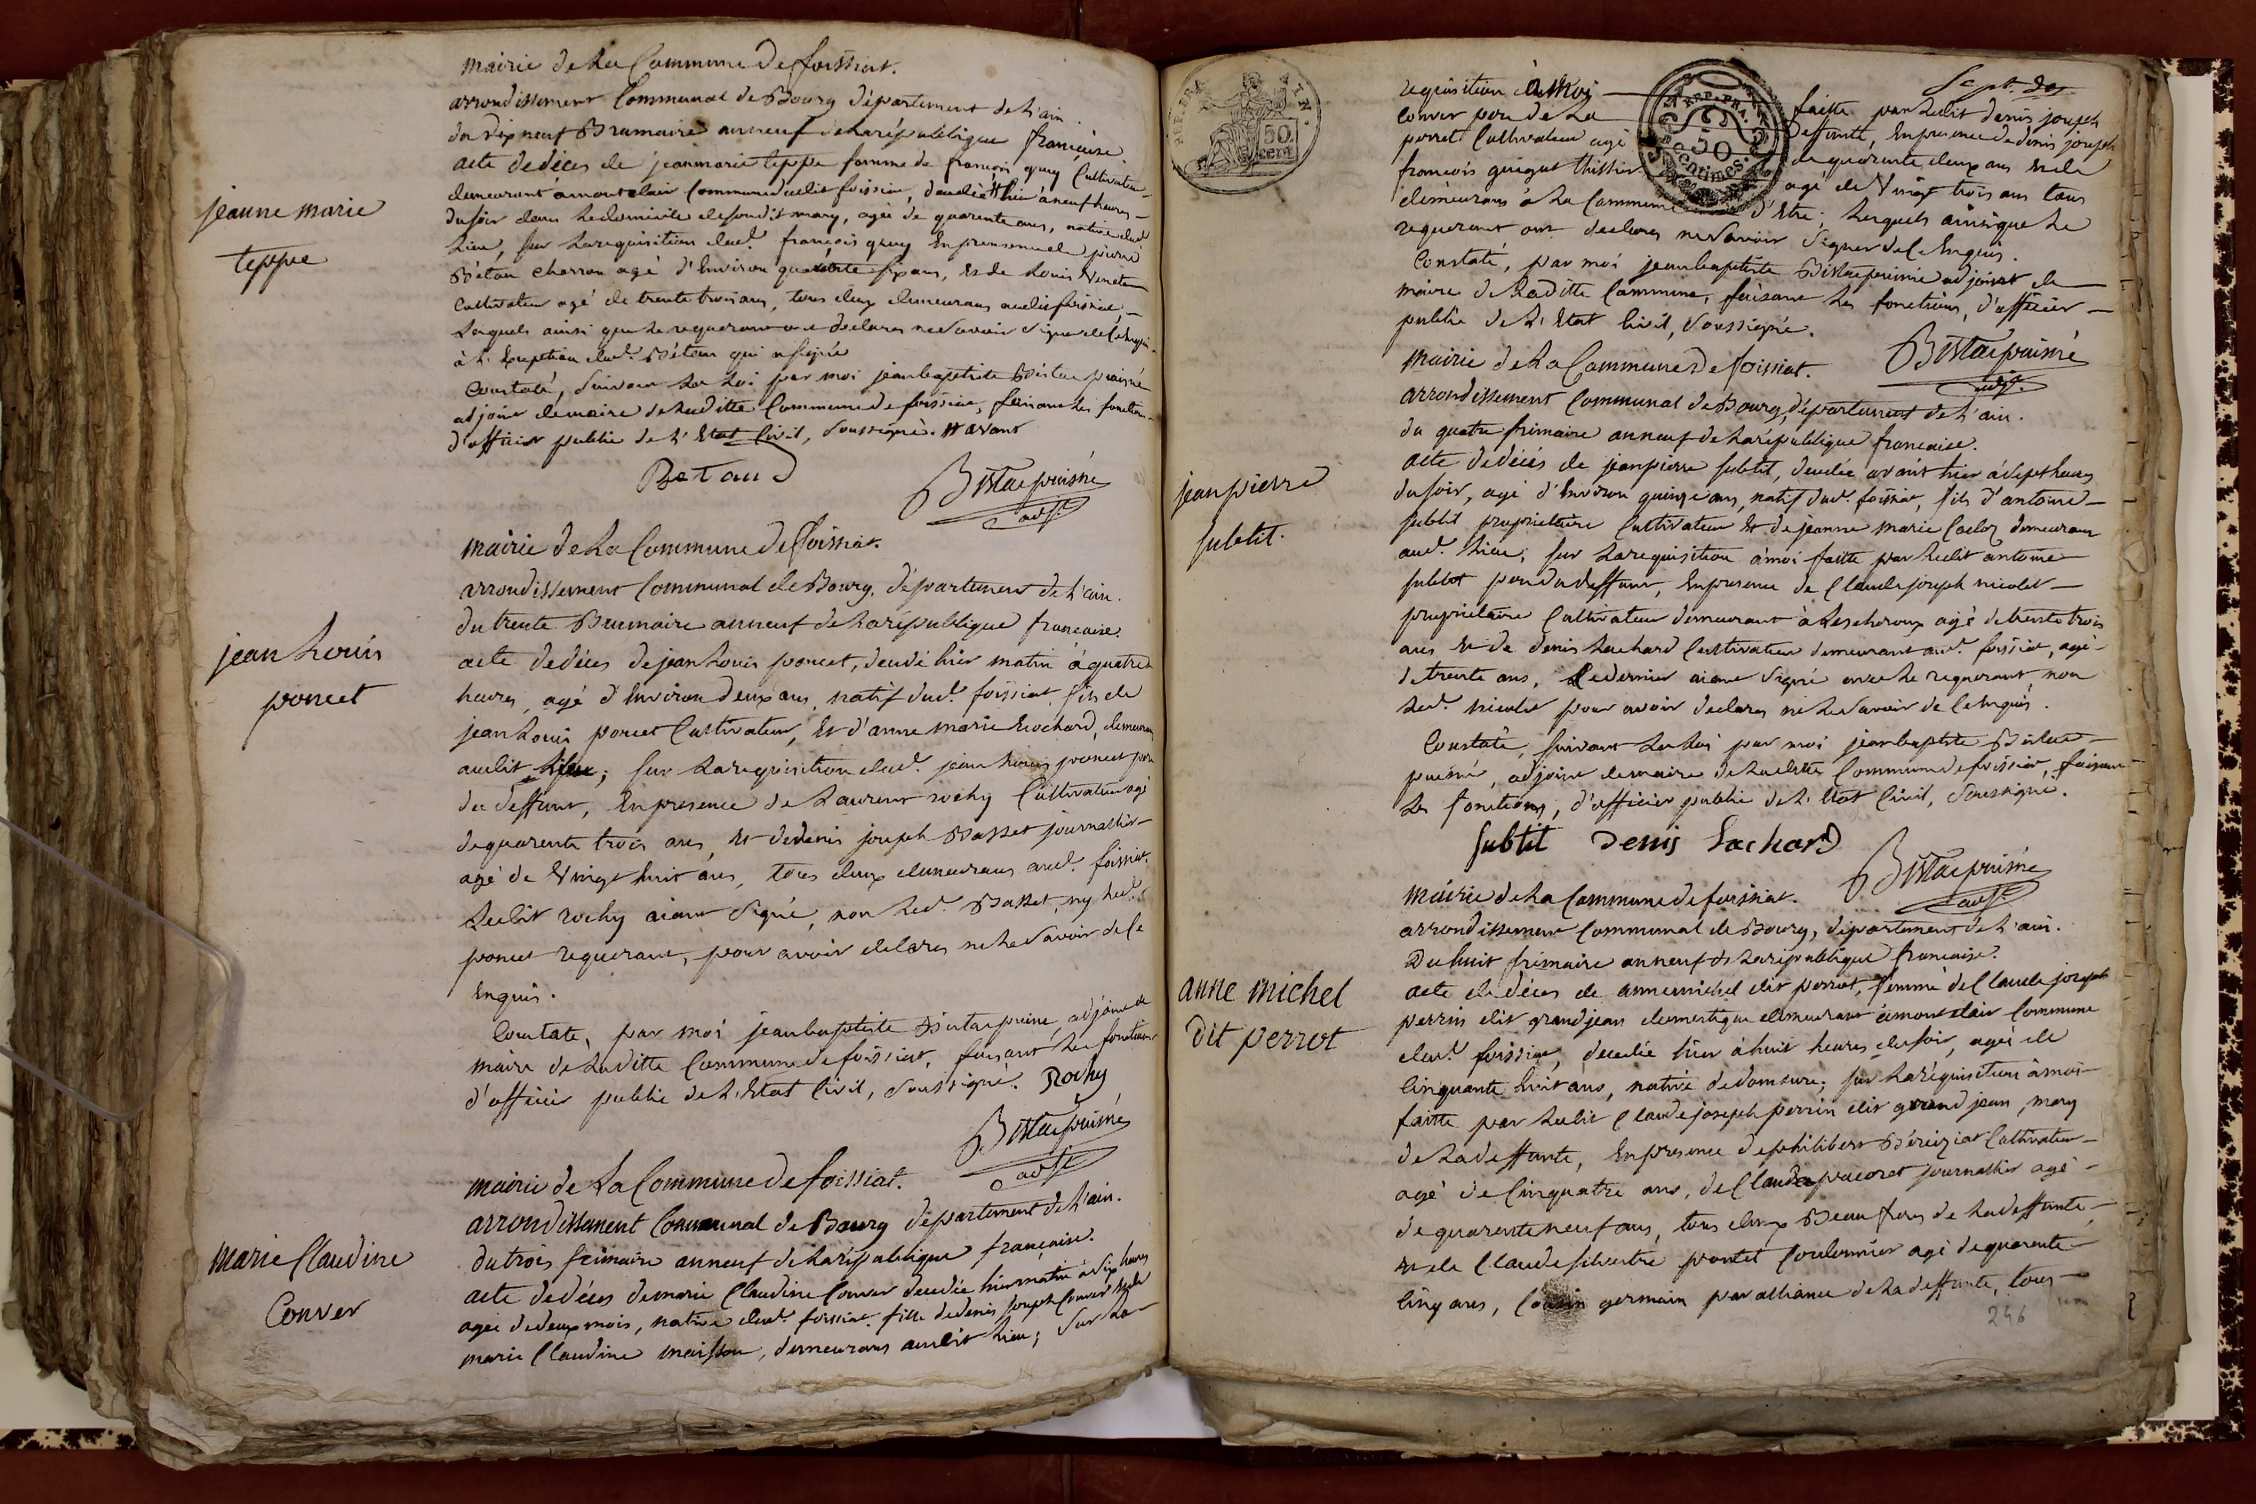 mairie de La Commune de foissiat.
arrondissement Communal de Bourg département de L'ain.
du dix neuf Brumaire an neuf de La république française
acte de déces de jeanmarie teppe famme de françois guy Cultivateur
demeurant à montclair Commune dudit foissiat, decedée # hier à neuf heures
du soir dans Le domicile desondit mary, agée de quarente ans, native dud.
Lieu, sur La requisition dud. françois guy En presence de pierre
Bétau charron agé d'Environ quarente six ans, et de Louis Venet
Cultivateur agé de trente trois ans, tous deux demeurans audit foissiat,
Lesquels ainsi que Le requerant ont declarés ne Savoir Signer de Ce Enquis
à L'Exception dud. Bétau qui a signé
Constaté, Suivant La Loi par moi jean baptiste puisné
adjoint de maire de Laditte Commune de foissiat, faisant Les fonctions
d'officier public de L'Etat Civil, Soussigné. # avant
Betaud
puisné
adjt
jeanne marie
teppe
mairie de La Commune de foissiat.
arrondissement Communal de Bourg, département de L'ain.
du trente Brumaire an neuf de La république française.
acte de déces de jean Louis poncet, decedé hier matin à quatre
heures, agé d'Environ deux ans, natif dud. foissiat, fils de
jean Louis poncet Cultivateur, Et d'anne marie Rochard, demeurans
audit Lieu; sur La requisition dud. jean Louis poncet pere
du deffunt, En presence de Laurent rochy Cultivateur agé
de quarente trois ans, et de denis joseph Basset journallier
agé de Vingt huit ans, tous deux demeurans aud. foissiat.
Ledit rochy aiant Signé, non Led. Basset, ny Led.
poncet requerant, pour avoir declarés ne Le Savoir de Ce
Enquis.
Constaté, par moi jean baptiste puisné, adjoint de
maire de Laditte Commune de foissiat, faisant Les fonctions
d'officier public de L'Etat Civil, Soussigné. Rochy
puisné
adjt
jean Louis
poncet
mairie de La Commune de foissiat.
arrondissement Communal de Bourg département de L'ain.
du trois frimaire an neuf de La république française.
acte de déces de marie Claudine Conver decedée hier matin à dix heures
agée de deux mois, native dud. foissiat. fille de denis joseph Conver et de
marie Claudine maisson, demeurans audit Lieu; Sur La
marie Claudine
Conver
REP. FRA
50
cent.
REP. FRA
50
Centimes.
requisition à moi faitte par Ledit denis joseph
Conver pere de La deffunte, En presence de denis joseph
perret Cultivateur agé de quarente deux ans et de
françois guigue thissier agé de Vingt trois ans tous
demeurans à La Commune d'Etré; Lesquels ainsi que Le
requerant ont declarés ne Savoir Signer de Ce Enquis.
Constaté, par moi jean baptiste puisné adjoint de
maire de Laditte Commune, faisant Les fonctions, d'officier
public de L'Etat Civil, Soussigné.
puisné
adjt.
mairie de La Commune de foissiat.
arrondissement Communal de Bourg, département de L'ain.
du quatre frimaire an neuf de La république française.
acte de décés de jean pierre subtit, decedé avant hier à sept heures
du soir, agé d'Environ quinze ans, natif dud. foissiat, fils d'antoine
subtit propriettaire Cultivateur Et de jeanne marie demeurans
aud. Lieu; sur La requisition à moi faitte par Ledit antoine
subtit pere du deffunt, En presence de Claude joseph nicolet
propriétaire Cultivateur demeurant à Lescheroux agé de trente trois
ans et de denis Lachard Cultivateur demeurant aud. foissiat, agé
de trente ans, Ce dernier aiant Signé avec Le requerant, non
Led. nicolet pour avoir declarés ne Le Savoir de Ce Enquis.
Constaté, suivant La Loi par moi jean baptiste
puisné, adjoint de maire de Laditte Commune de foissiat, faisant
Les fonctions, d'officier public de L'Etat Civil, Soussigné.
Subtit Denis Lachard
puisné
adjt
jean pierre
subtit.
mairie de La Commune de foissiat.
arrondissement Communal de Bourg, département de L'ain.
Du huit frimaire an neuf de La république française.
acte de déces de anne michel dit perrot, femme de Claude joseph
perrin dit grandjean domestique demeurant à montclair Commune
dud. foissiat, decedée hier à huit heures du soir, agée de
Cinquante huit ans, native de domsure; sur La réquisition à moi
faitte par Ledit Claude joseph perrin dit grand jean, mary
de La deffunte, En presence de philibert Béréziat Cultivateur
agé de Cinquatre ans, de Claude pacoret journallier agé
de quarente neuf ans, tous deux Beau freres de La deffunte,
et de Claude silvestre pontet agé de quarente
Cinq ans, Cousin germain par alliance de La deffunte, tous
anne michel
dit perrot
246